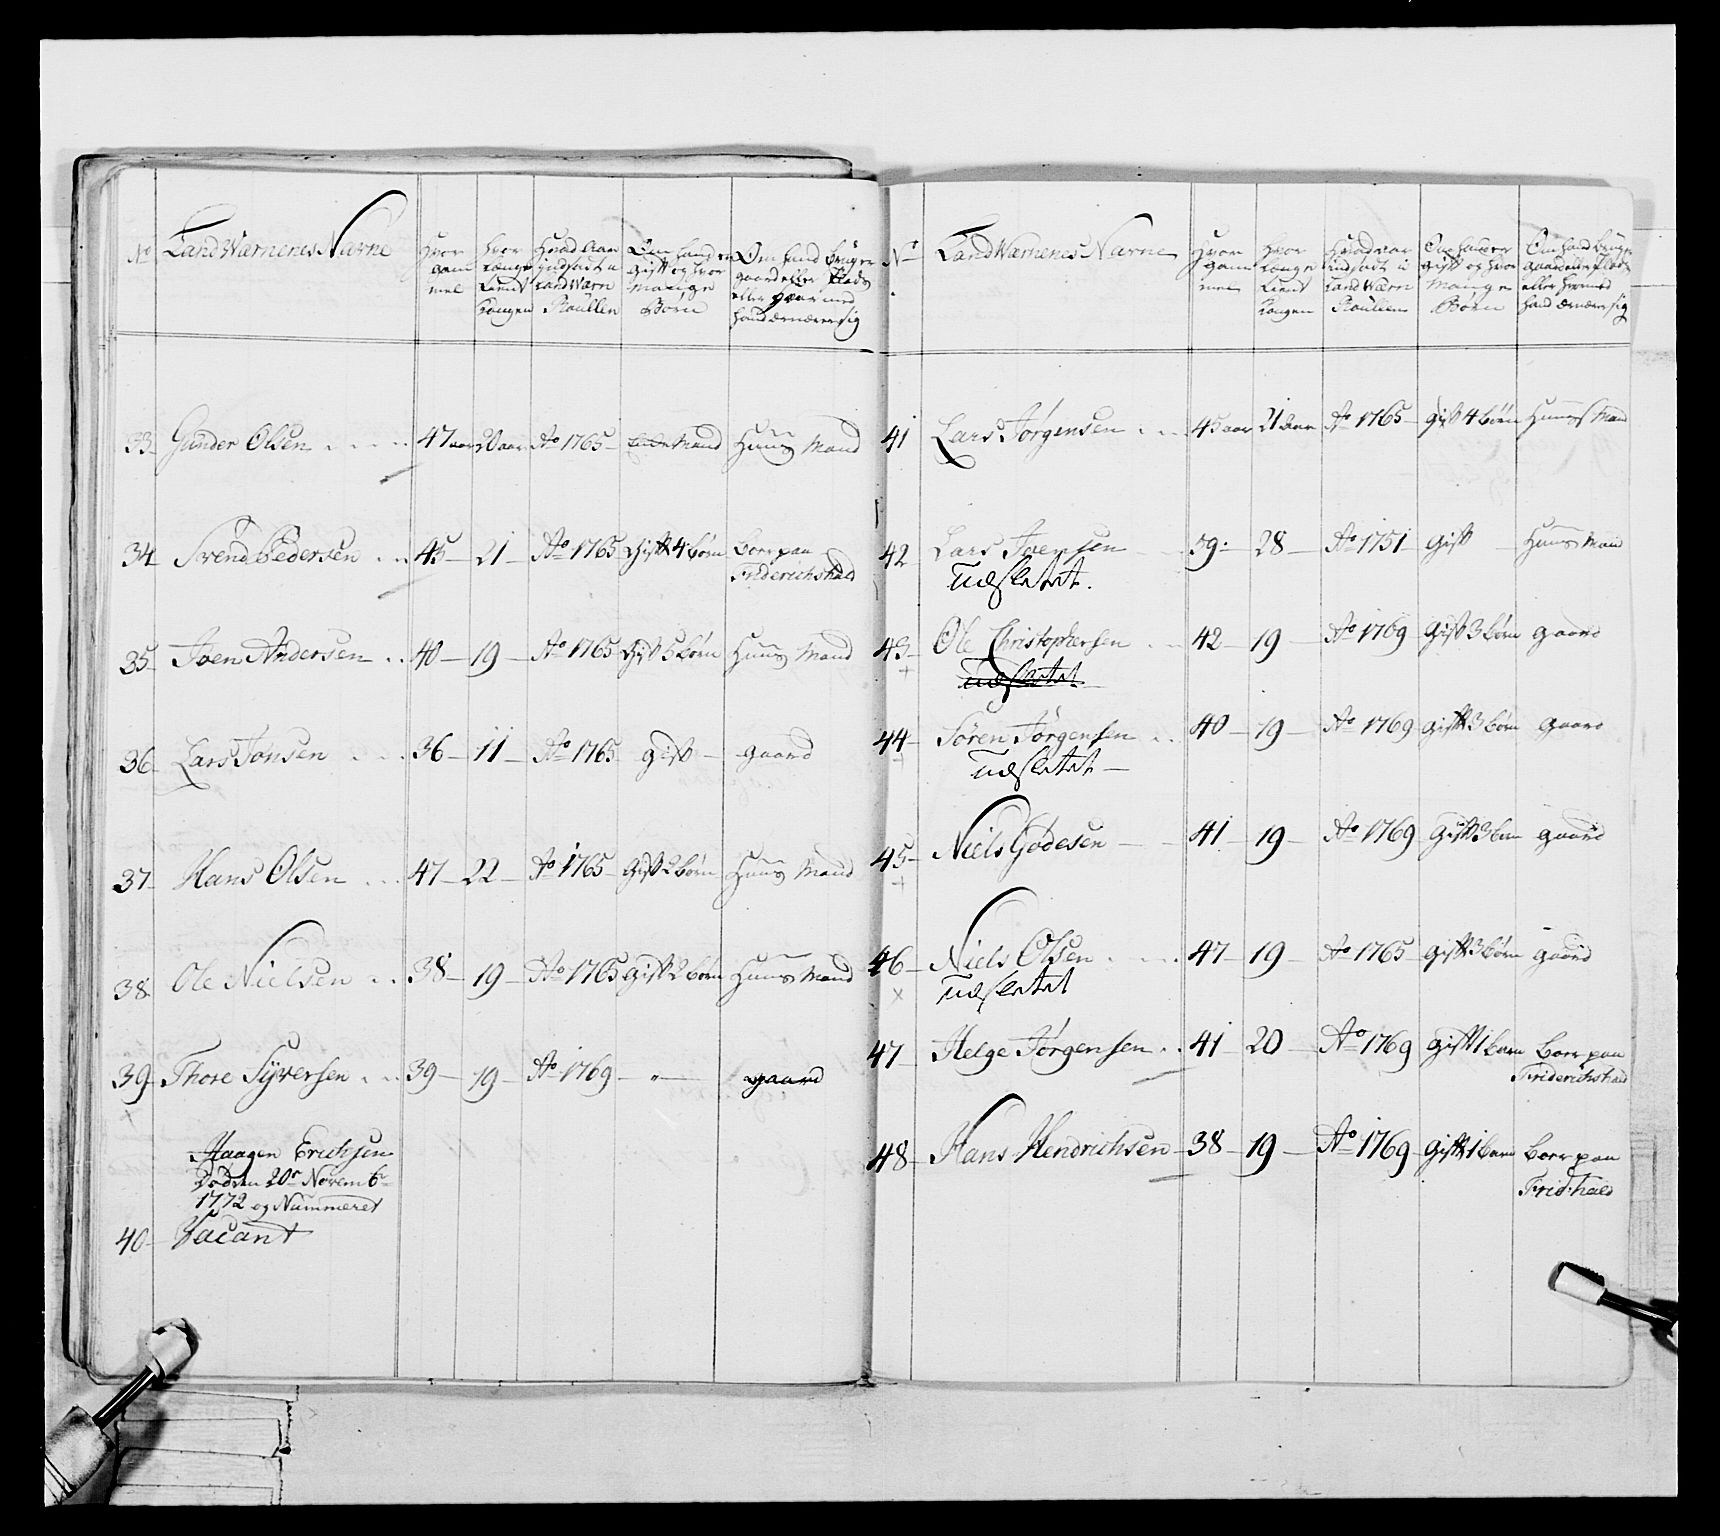 No LandWærnenes Navne Hvor gammel Hvor Længe tient Kongen Hvad Aar indsadt i Land Wærn Roullen Om hand er gift og hvor mange Børn Om hand bruger gaard eller Plads eller hvormed hand ernærer sig
33 Gunder Olsen 47 aar aar Ao 1765 Enke Mand Huus Mand
34 Svend Pedersen 45 21 Ao 1765 Gift 4 børn Boer paa Friderichshald
35 Joen Andersen 40 19 Ao 1765 Gift 5 børn Huus Mand
36 Lars Jonsen 36 11 Ao 1765 gift gaard
37 Hans Olsen 47 22 Ao 1765 Gift 2 børn Huus Mand
38 Ole Nielsen 38 19 Ao 1765 Gift 2 børn Huus Mand
39 Thore Syversen 39 19 Ao 1769 " gaard
Haagen Erichsen
Død den 20r Novemb
1772 og Nummeret
40 Vacant
No LandWærnenes Navne Hvor gammel Hvor Længe tient Kongen Hvad aar indsadt i Land Wærn Roullen Om hand er gift og hvor mange Børn Om hand bruger gaard eller Plads eller hvormed hand ernærer sig
41 Lars Jørgensen 45 aar 21 aar Ao 1765 gift 4 børn Huus Mand
42 Lars Joensen 59 28 Ao 1751 gift Huus Mand
Udslettet.
43 Ole Christophersen 42 19 Ao 1769 Gift 3 børn gaard
Udslettet
44 Søren Jørgensen 40 19 Ao 1769 gift 3 børn gaard
Udslettet
45 Niels Gødesen 41 19 Ao 1769 Gift 3 børn gaard
46 Niels Olsen 47 19 Ao 1765 gift 3 børn gaard
Udslettet
47 Helge Jørgensen 41 20 Ao 1769 Gift 1 barn Boer paa Friderichshald
48 Hans Hendrichsen 38 19 Ao 1769 Gift 1 barn Boer paa Frid:hald